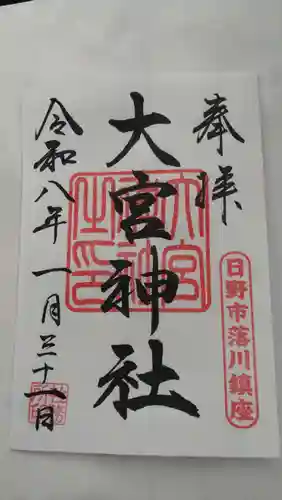 奉拝
日野市落川鎮座
大宮神社
大宮神社之印
令和八年一月三十一日